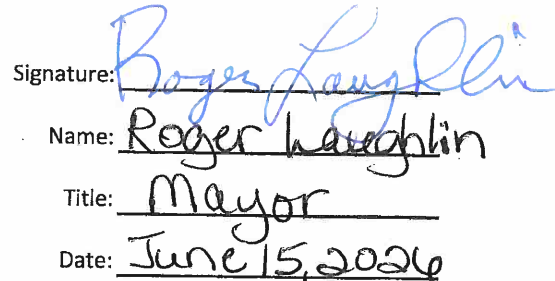 Signature: Roger Laughlin
Name: Roger Laughlin
Title: Mayor
Date: June 15, 2026